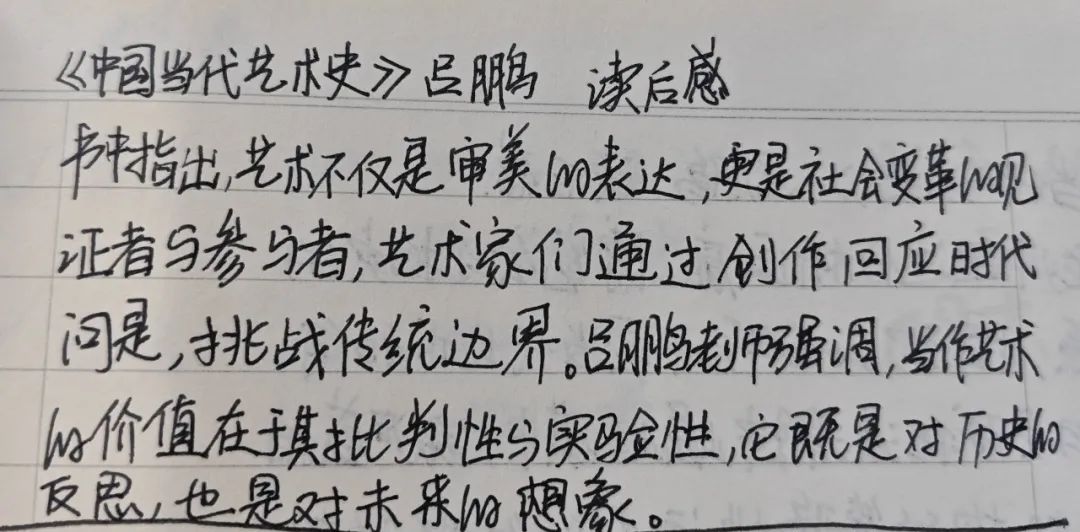 《中国当代艺术史》吕鹏 读后感
书中指出,艺术不仅是审美的表达,更是社会变革的见
证者与参与者,艺术家们通过创作回应时代
问是,挑战传统边界。吕鹏老师强调,当作艺术
的价值在于其批判性与实验性,它既是对历史的
反思,也是对未来的想象。